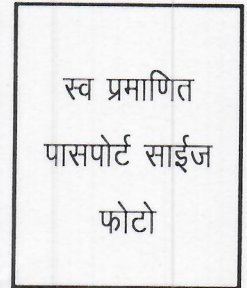 स्व प्रमाणित
पासपोर्ट साईज
फोटो